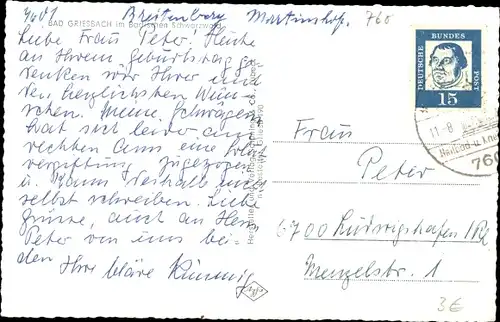 4401 Breitenberg Martinshof. 760
BAD GRIESBACH im Badischen Schwarzwald
Liebe Frau Peter. Heute
an Ihrem Geburtstag ge
denken wir Ihrer mit
den herzlichsten Wün
schen. Meine Schwägerin
hat sich leider am
rechten Arm eine Blut
vergiftung zugezogen
u. kann deshalb nicht
selbst schreiben. Liebe
Grüsse, auch an Herrn
Peter von uns bei-
den Ihre Kimmig
DEUTSCHE BUNDES POST
15
11.-8
760
Frau
Peter
6700 Ludwigshafen / Rh
Menzelstr. 1
3€